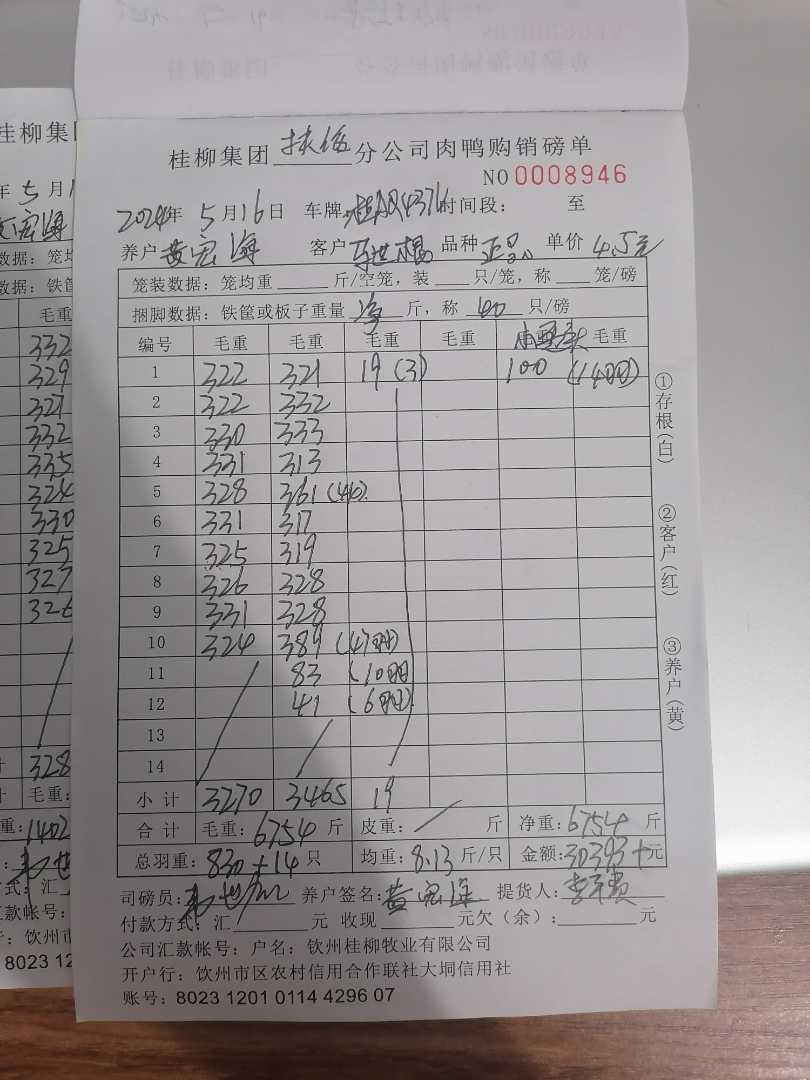 桂柳集团 扶绥 分公司肉鸭购销磅单
NO 0008946
2024年 5月16日 车牌: 时间段: 至
养户 黄宏海 客户 马世根 品种 正品 单价 4.5元
笼装数据: 笼均重 斤/空笼, 装 只/笼, 称 笼/磅
捆脚数据: 铁筐或板子重量 净 斤, 称 40 只/磅
编号 毛重 毛重 毛重 毛重 毛重
1 322 321 19 (3) 100 (14只)
2 322 332
3 330 333
4 331 313
5 328 361 (44只)
6 331 317
7 325 319
8 326 328
9 331 328
10 324 389 (47只)
11 83 (10只)
12 41 (6只)
13
14
小计 3270 3465 19
合计 毛重: 6754 斤 皮重: / 斤 净重: 6754 斤
总羽重: 830+14 只 均重: 8.13 斤/只 金额: 30393 元
司磅员: 养户签名: 黄宏海 提货人:
付款方式: 汇 元 收现 元欠(余): 元
公司汇款帐号: 户名: 钦州桂柳牧业有限公司
开户行: 饮州市区农村信用合作联社大垌信用社
账号: 8023 1201 0114 4296 07
①存根(白)
②客户(红)
③养户(黄)
桂柳集团
年 5月1
数据: 笼均
数据: 铁筐
毛重
332
329
327
332
335
324
330
325
327
326
328
毛重:
重: 1402
款帐号:
: 钦州市
8023 12